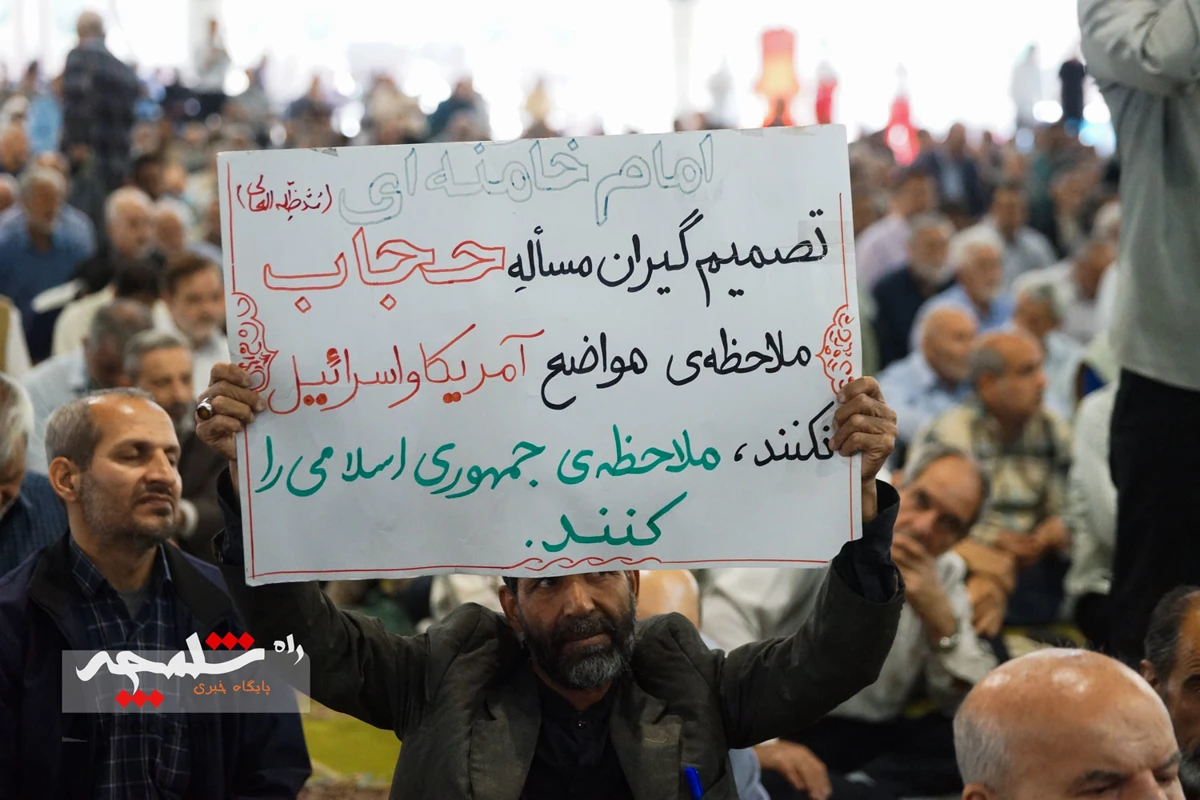 امام خامنه‌ای (مُدّظِلّه العالی)
تصمیم گیران مسألهٔ حجاب
ملاحظه‌ی مواضع آمریکا و اسرائیل
نکنند، ملاحظه‌ی جمهوری اسلامی را
کنند.
راه شلمچه
پایگاه خبری